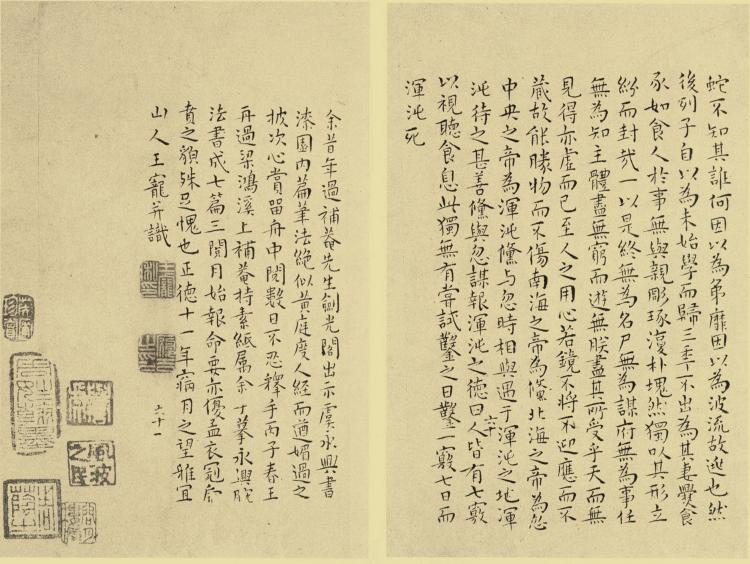 蛇不知其誰何因以為弟靡因以為波流故逃也然
後列子自以為未始學而歸三季不出為其妻爨食
豕如食人於事無與親彫琢復朴塊然獨以其形立
紛而封哉一以是終無為名尸無為謀府無為事任
無為知主體盡無窮而遊無朕盡其所受乎天而無
見得亦虛而已至人之用心若鏡不將不迎應而不
藏故能勝物而不傷南海之帝為儵北海之帝為忽
中央之帝為渾沌儵与忽時相與遇于渾沌之地渾
沌待之甚善儵與忽謀報渾沌之德曰人皆有七竅
以視聽食息此獨無有嘗試鑿之日鑿一竅七日而
渾沌死
六十
余昔年過補菴先生劍光閣出示虞永興書
漆園內篇筆法絕似黃庭度人經而遒媚過之
披次心賞留舟中閱數日不忍釋手丙子春王
再過梁鴻溪上補菴持素紙屬余寸摹永興脫
法書成七篇三閱月始報命要亦優孟衣冠虎
賁之貌殊足愧也正德十一年病月之望雅宜
山人王寵并識
六十一
風波之民